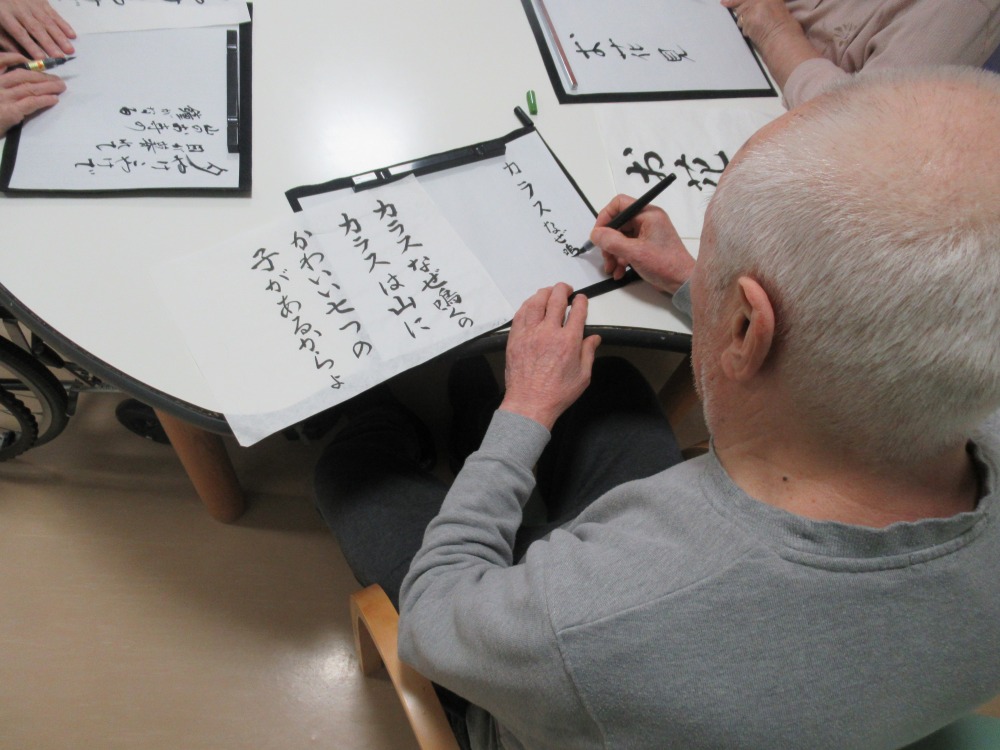 カラスなぜ鳴くの
カラスは山に
かわいい七つの
子があるからよ
カラスなぜ鳴
夕やけこやけで
日が暮れて
山のお寺の
鐘がなる
お花見
お花